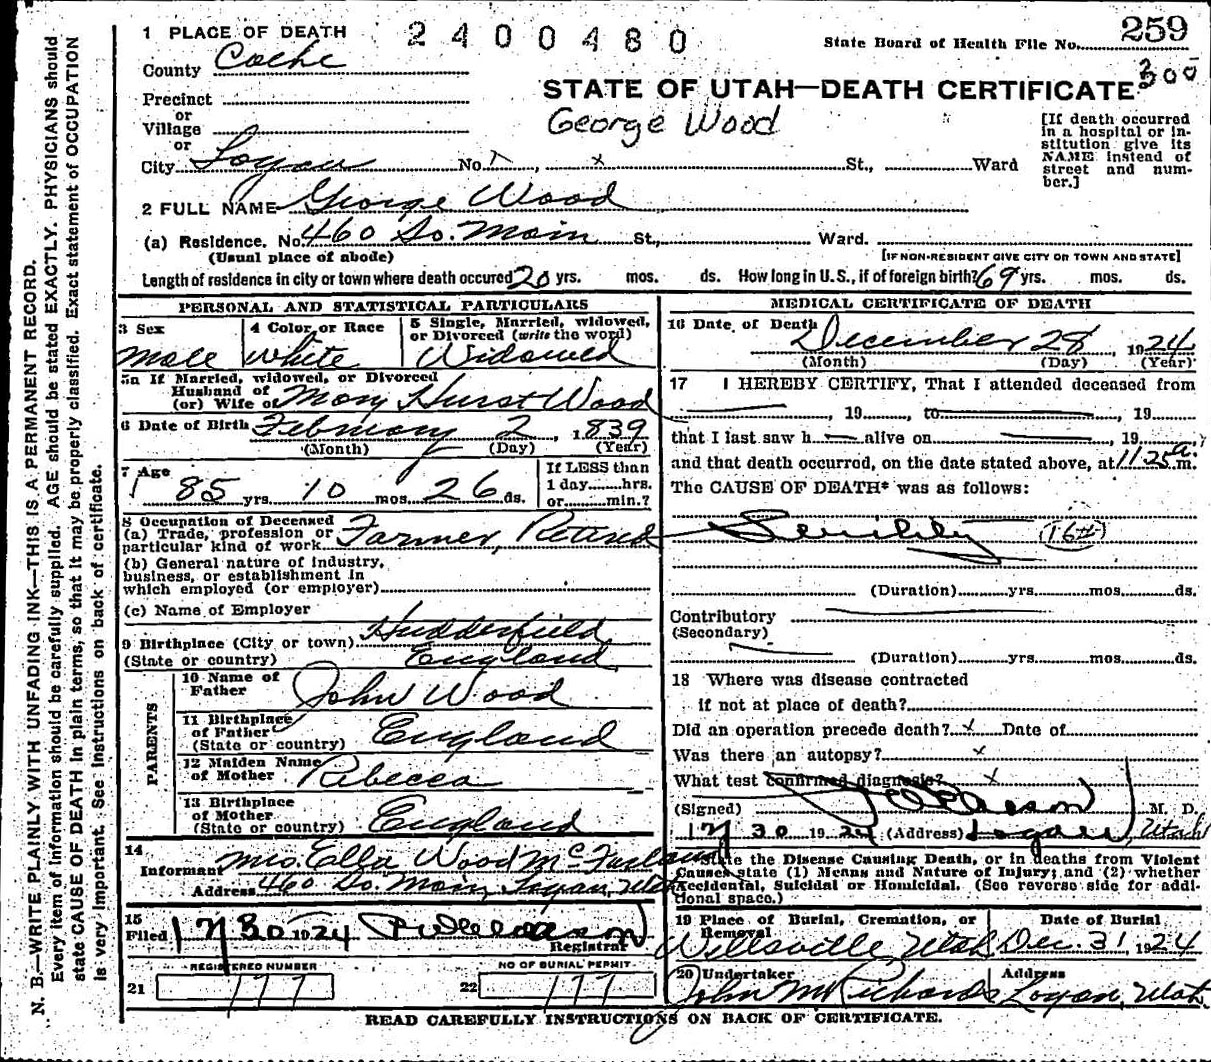 1 PLACE OF DEATH 2400480 State Board of Health File No. 259
County Cache
300
STATE OF UTAH—DEATH CERTIFICATE
Precinct
or
Village
or
City Logan No. x St., Ward
George Wood
[If death occurred
in a hospital or in-
stitution give its
NAME instead of
street and num-
ber.]
2 FULL NAME George Wood
(a) Residence. No. 460 So. Main St., Ward.
(Usual place of abode) [IF NON-RESIDENT GIVE CITY OR TOWN AND STATE]
Length of residence in city or town where death occured 20 yrs. mos. ds. How long in U.S., if of foreign birth? 69 yrs. mos. ds.
PERSONAL AND STATISTICAL PARTICULARS
3 Sex Male
4 Color or Race White
5 Single, Married, widowed,
or Divorced (write the word)
Widowed
5a If Married, widowed, or Divorced
Husband of
(or) Wife of Mary Hurst Wood
6 Date of Birth February 2, 1839
(Month) (Day) (Year)
7 Age
85 yrs. 10 mos. 26 ds.
If LESS than
1 day......hrs.
or......min.?
8 Occupation of Deceased
(a) Trade, profession or
particular kind of work Farmer, Retired
(b) General nature of industry,
business, or establishment in
which employed (or employer)
(c) Name of Employer
9 Birthplace (City or town) Hudderfield
(State or country) England
PARENTS
10 Name of
Father John Wood
11 Birthplace
of Father
(State or country) England
12 Maiden Name
of Mother Rebecca
13 Birthplace
of Mother
(State or country) England
14
Informant Mrs. Ella Wood McFarland
Address 460 So. Main, Logan, Utah
15
Filed 30 1924
Registrar
REGISTERED NUMBER
21 177
NO OF BURIAL PERMIT
22 177
MEDICAL CERTIFICATE OF DEATH
16 Date of Death December 28, 1924
(Month) (Day) (Year)
17 I HEREBY CERTIFY, That I attended deceased from
, 19......, to , 19......
that I last saw h alive on , 19......,
and that death occurred, on the date stated above, at 11 25 a.m.
The CAUSE OF DEATH* was as follows:
Senility
(Duration)......yrs......mos......ds.
Contributory
(Secondary)
(Duration)......yrs......mos......ds.
18 Where was disease contracted
if not at place of death?
Did an operation precede death? x Date of
Was there an autopsy? x
What test confirmed diagnosis? x
(Signed) M. D.
30 1924 (Address) Logan, Utah
State the Disease Causing Death, or in deaths from Violent
Causes state (1) Means and Nature of Injury; and (2) whether
Accidental, Suicidal or Homicidal. (See reverse side for addi-
tional space.)
19 Place of Burial, Cremation, or
Removal
Wellsville Utah
Date of Burial
Dec. 31, 1924
20 Undertaker
John M Richards
Address
Logan, Utah.
READ CAREFULLY INSTRUCTIONS ON BACK OF CERTIFICATE.
N. B.—WRITE PLAINLY WITH UNFADING INK—THIS IS A PERMANENT RECORD.
Every item of information should be carefully supplied. AGE should be stated EXACTLY. PHYSICIANS should
state CAUSE OF DEATH in plain terms, so that it may be properly classified. Exact statement of OCCUPATION
is very important. See instructions on back of certificate.